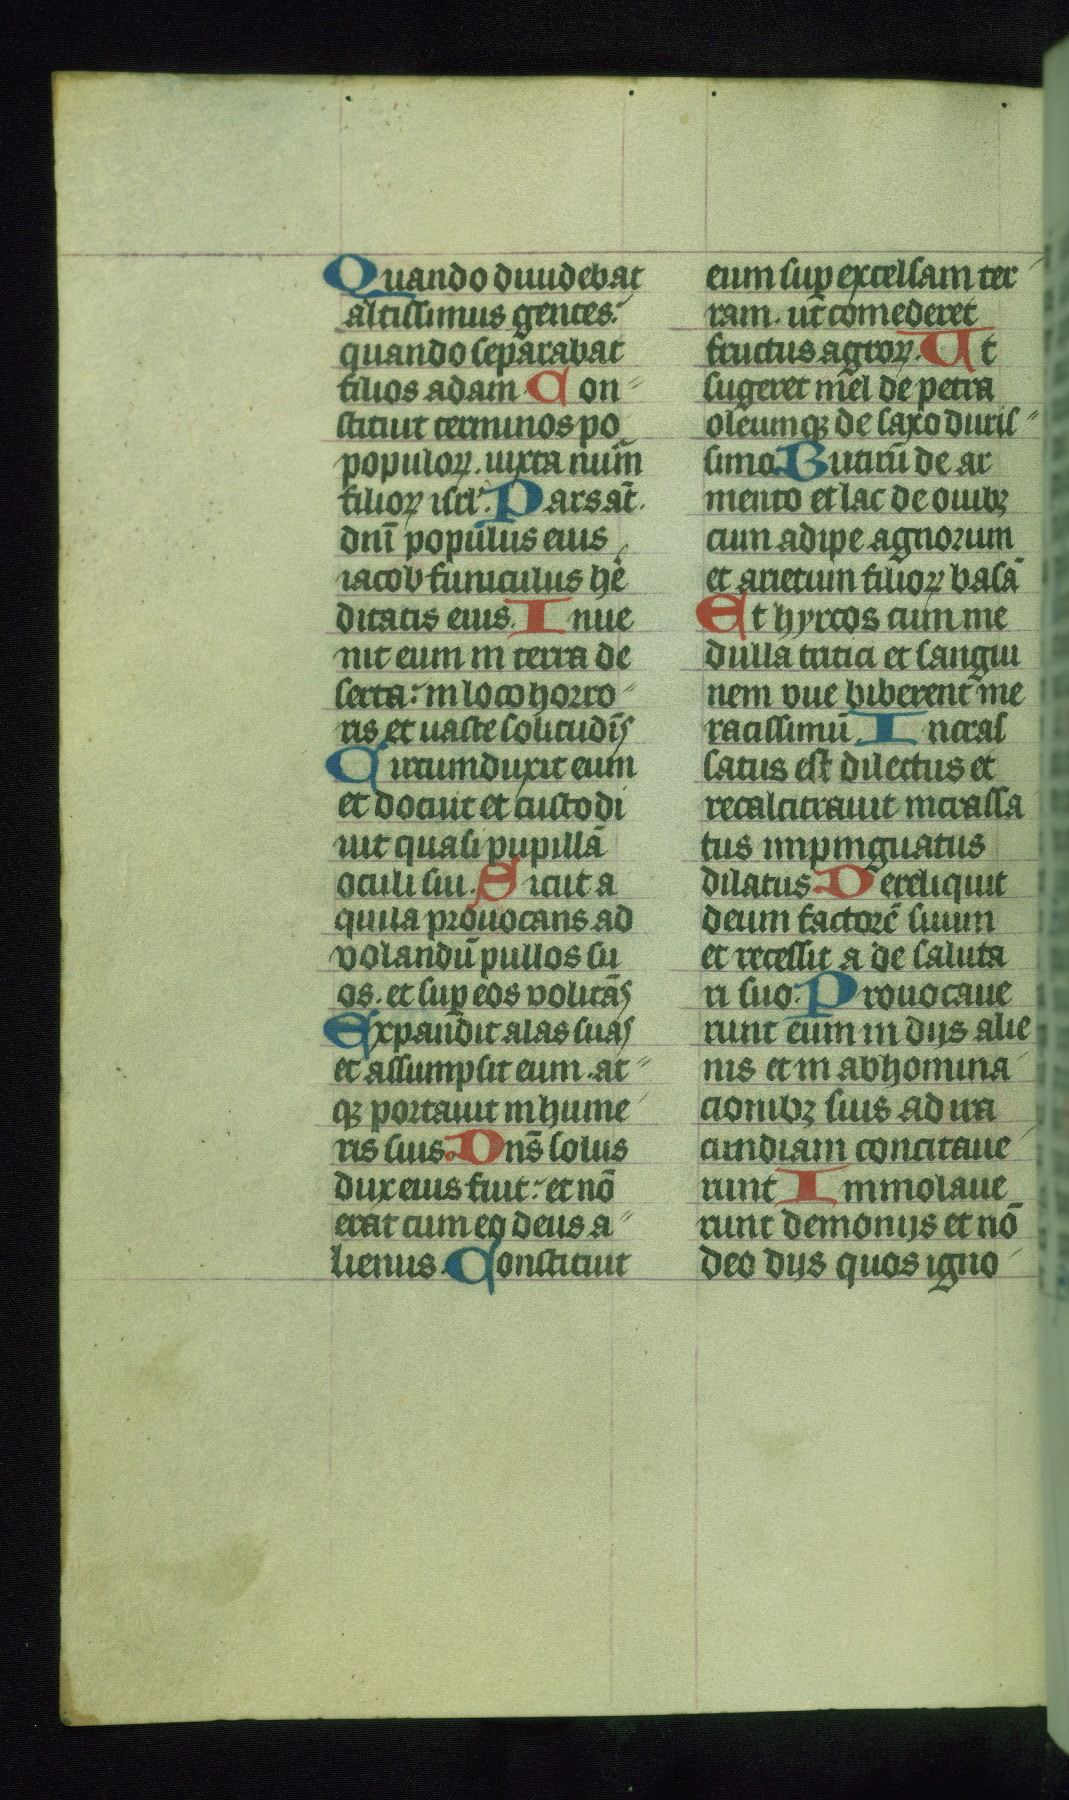 Quando diuidebat
altissimus gentes:
quando separabat
filios adam Con-
stituit terminos po
populoꝝ. iuxta nūm
filioꝝ isrl'. Pars aūt.
dnī populus eius
iacob funiculus hē
ditatis eius. Inue
nit eum in terra de
serta: in loco horro-
ris et uaste solitudīs
Circumduxit eum
et docuit et custodi
uit quasi pupillā
oculi sui. Sicut a
quila prouocans ad
volandū pullos su
os. et suꝑ eos volitās
Expandit alas suas
et assumpsit eum. at-
qꝫ portauit in hume
ris suis. Dns̄ solus
dux eius fuit: et nō
erat cum eo deus a-
lienus. Constituit
eum suꝑ excelsam ter
ram. ut comederet
fructus agroꝝ. Ut
sugeret mel de petra
oleumqꝫ de saxo duris-
simo Butirū de ar
mento et lac de ouibꝫ
cum adipe agnorum
et arietum filioꝝ basā
Et hyrcos cum me
dulla tritici et sangui
nem vue biberent me
racissimū. Incras
satus est dilectus et
recalcitrauit incrassa
tus inpinguatus
dilatus Dereliquit
deum factorē suum
et recessit a de saluta
ri suo. Prouocaue
runt eum in dijs alie
nis et in abhomina
cionibꝫ suis ad ira
cundiam concitaue
runt Immolaue
runt demonijs et nō
deo dijs quos igno